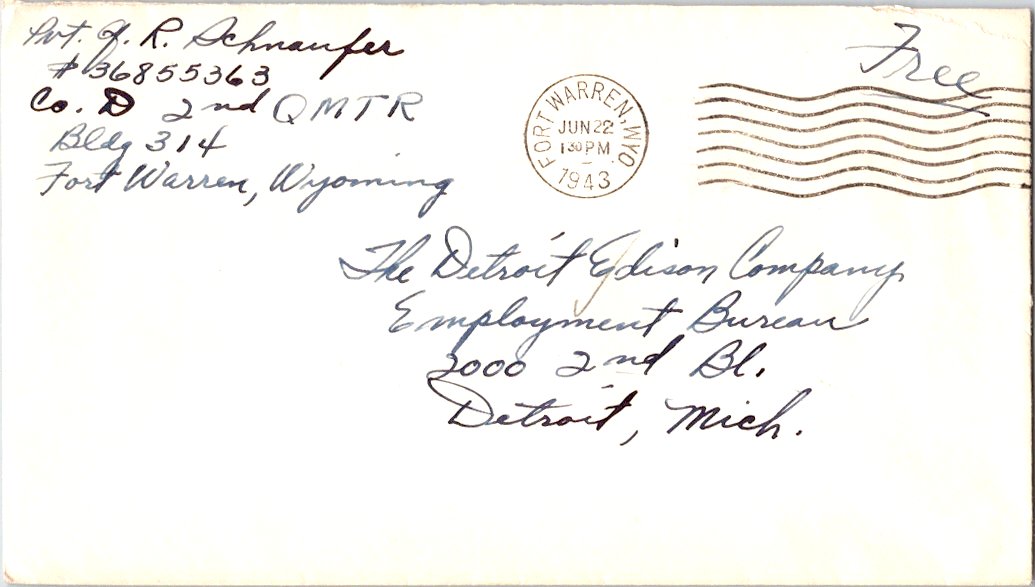 Pvt. J. R. Schnaufer
# 36855363
Co. D 2nd QMTR
Bldg 314
Fort Warren, Wyoming
Free
FORT WARREN, WYO.
JUN 22
1 30 PM
1943
The Detroit Edison Company
Employment Bureau
2000 2nd Bl.
Detroit, Mich.